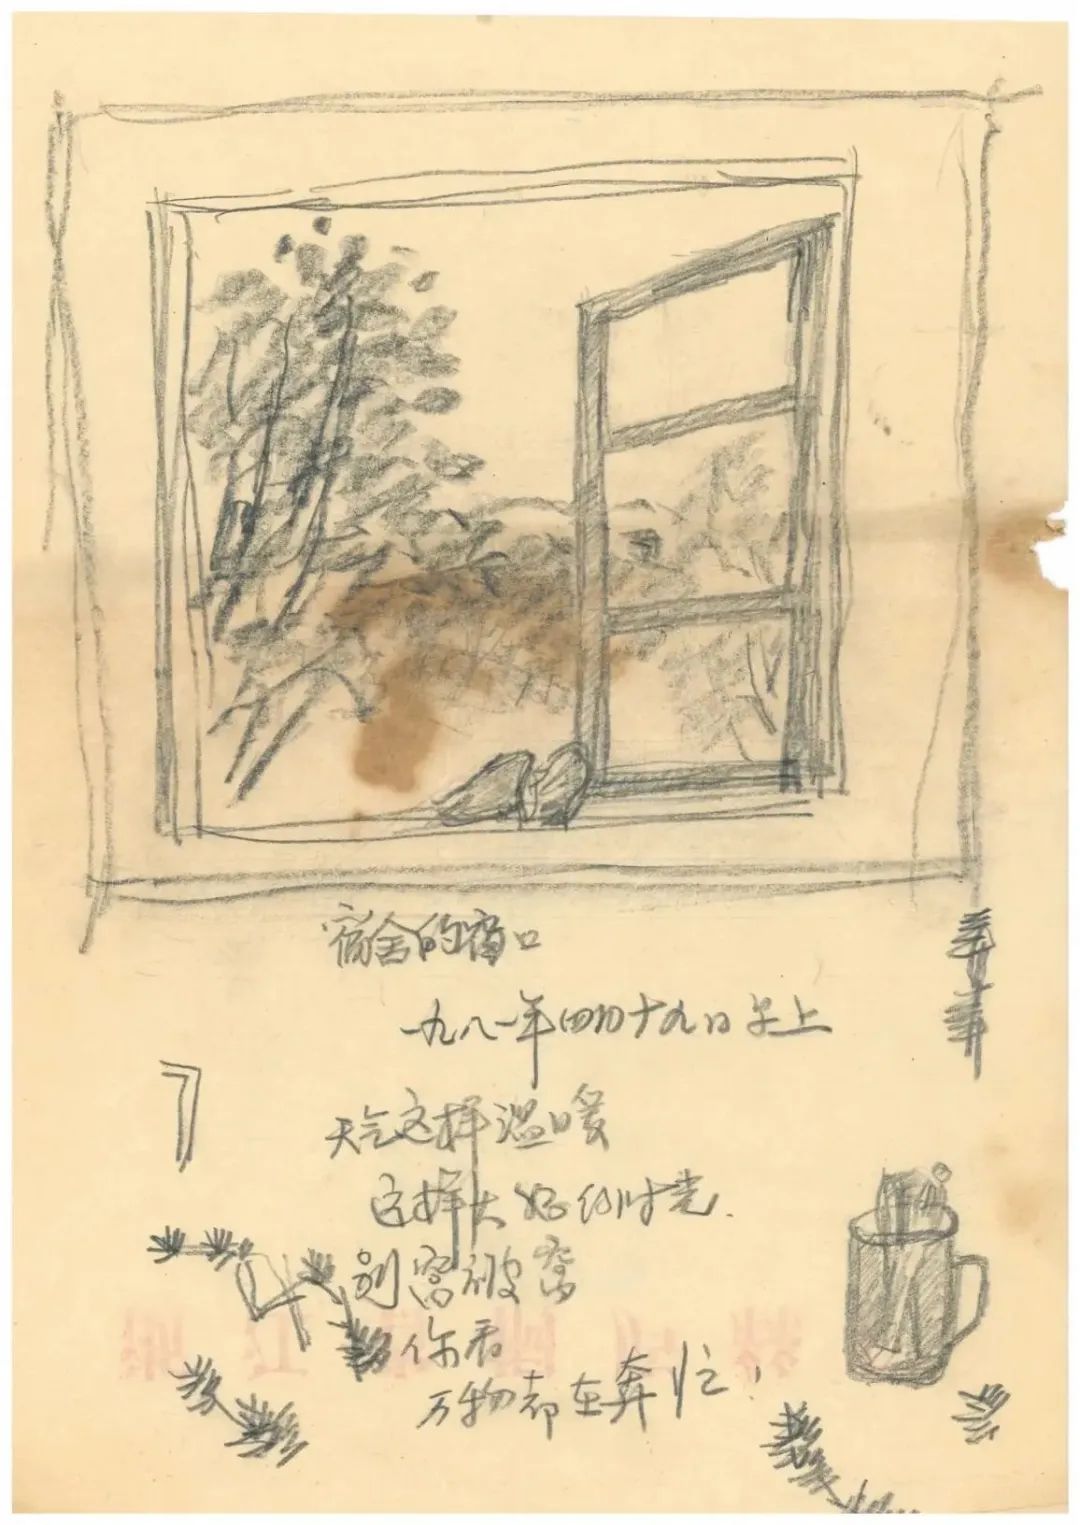 宿舍的窗口
一九八一年四月十九日早上
天气这样温暖
这样大好的时光.
别窝被窝
你看
万物都在奔忙!